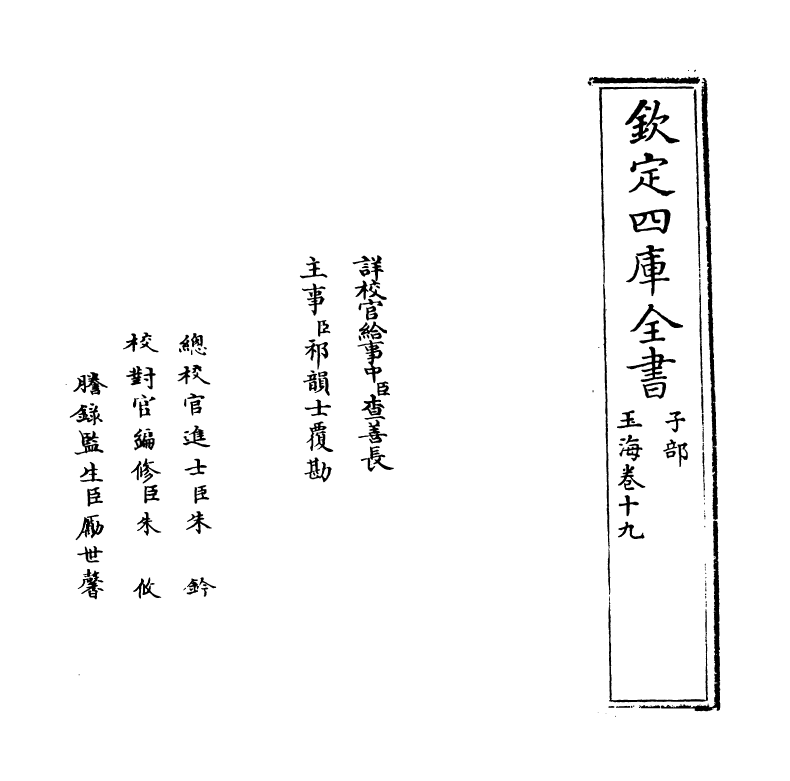 欽定四庫全書
子部
玉海卷十九
詳校官給事中臣查善長
主事臣祁韻士覆勘
總校官進士臣朱鈐
校對官編修臣朱攸
謄錄監生臣勵世馨